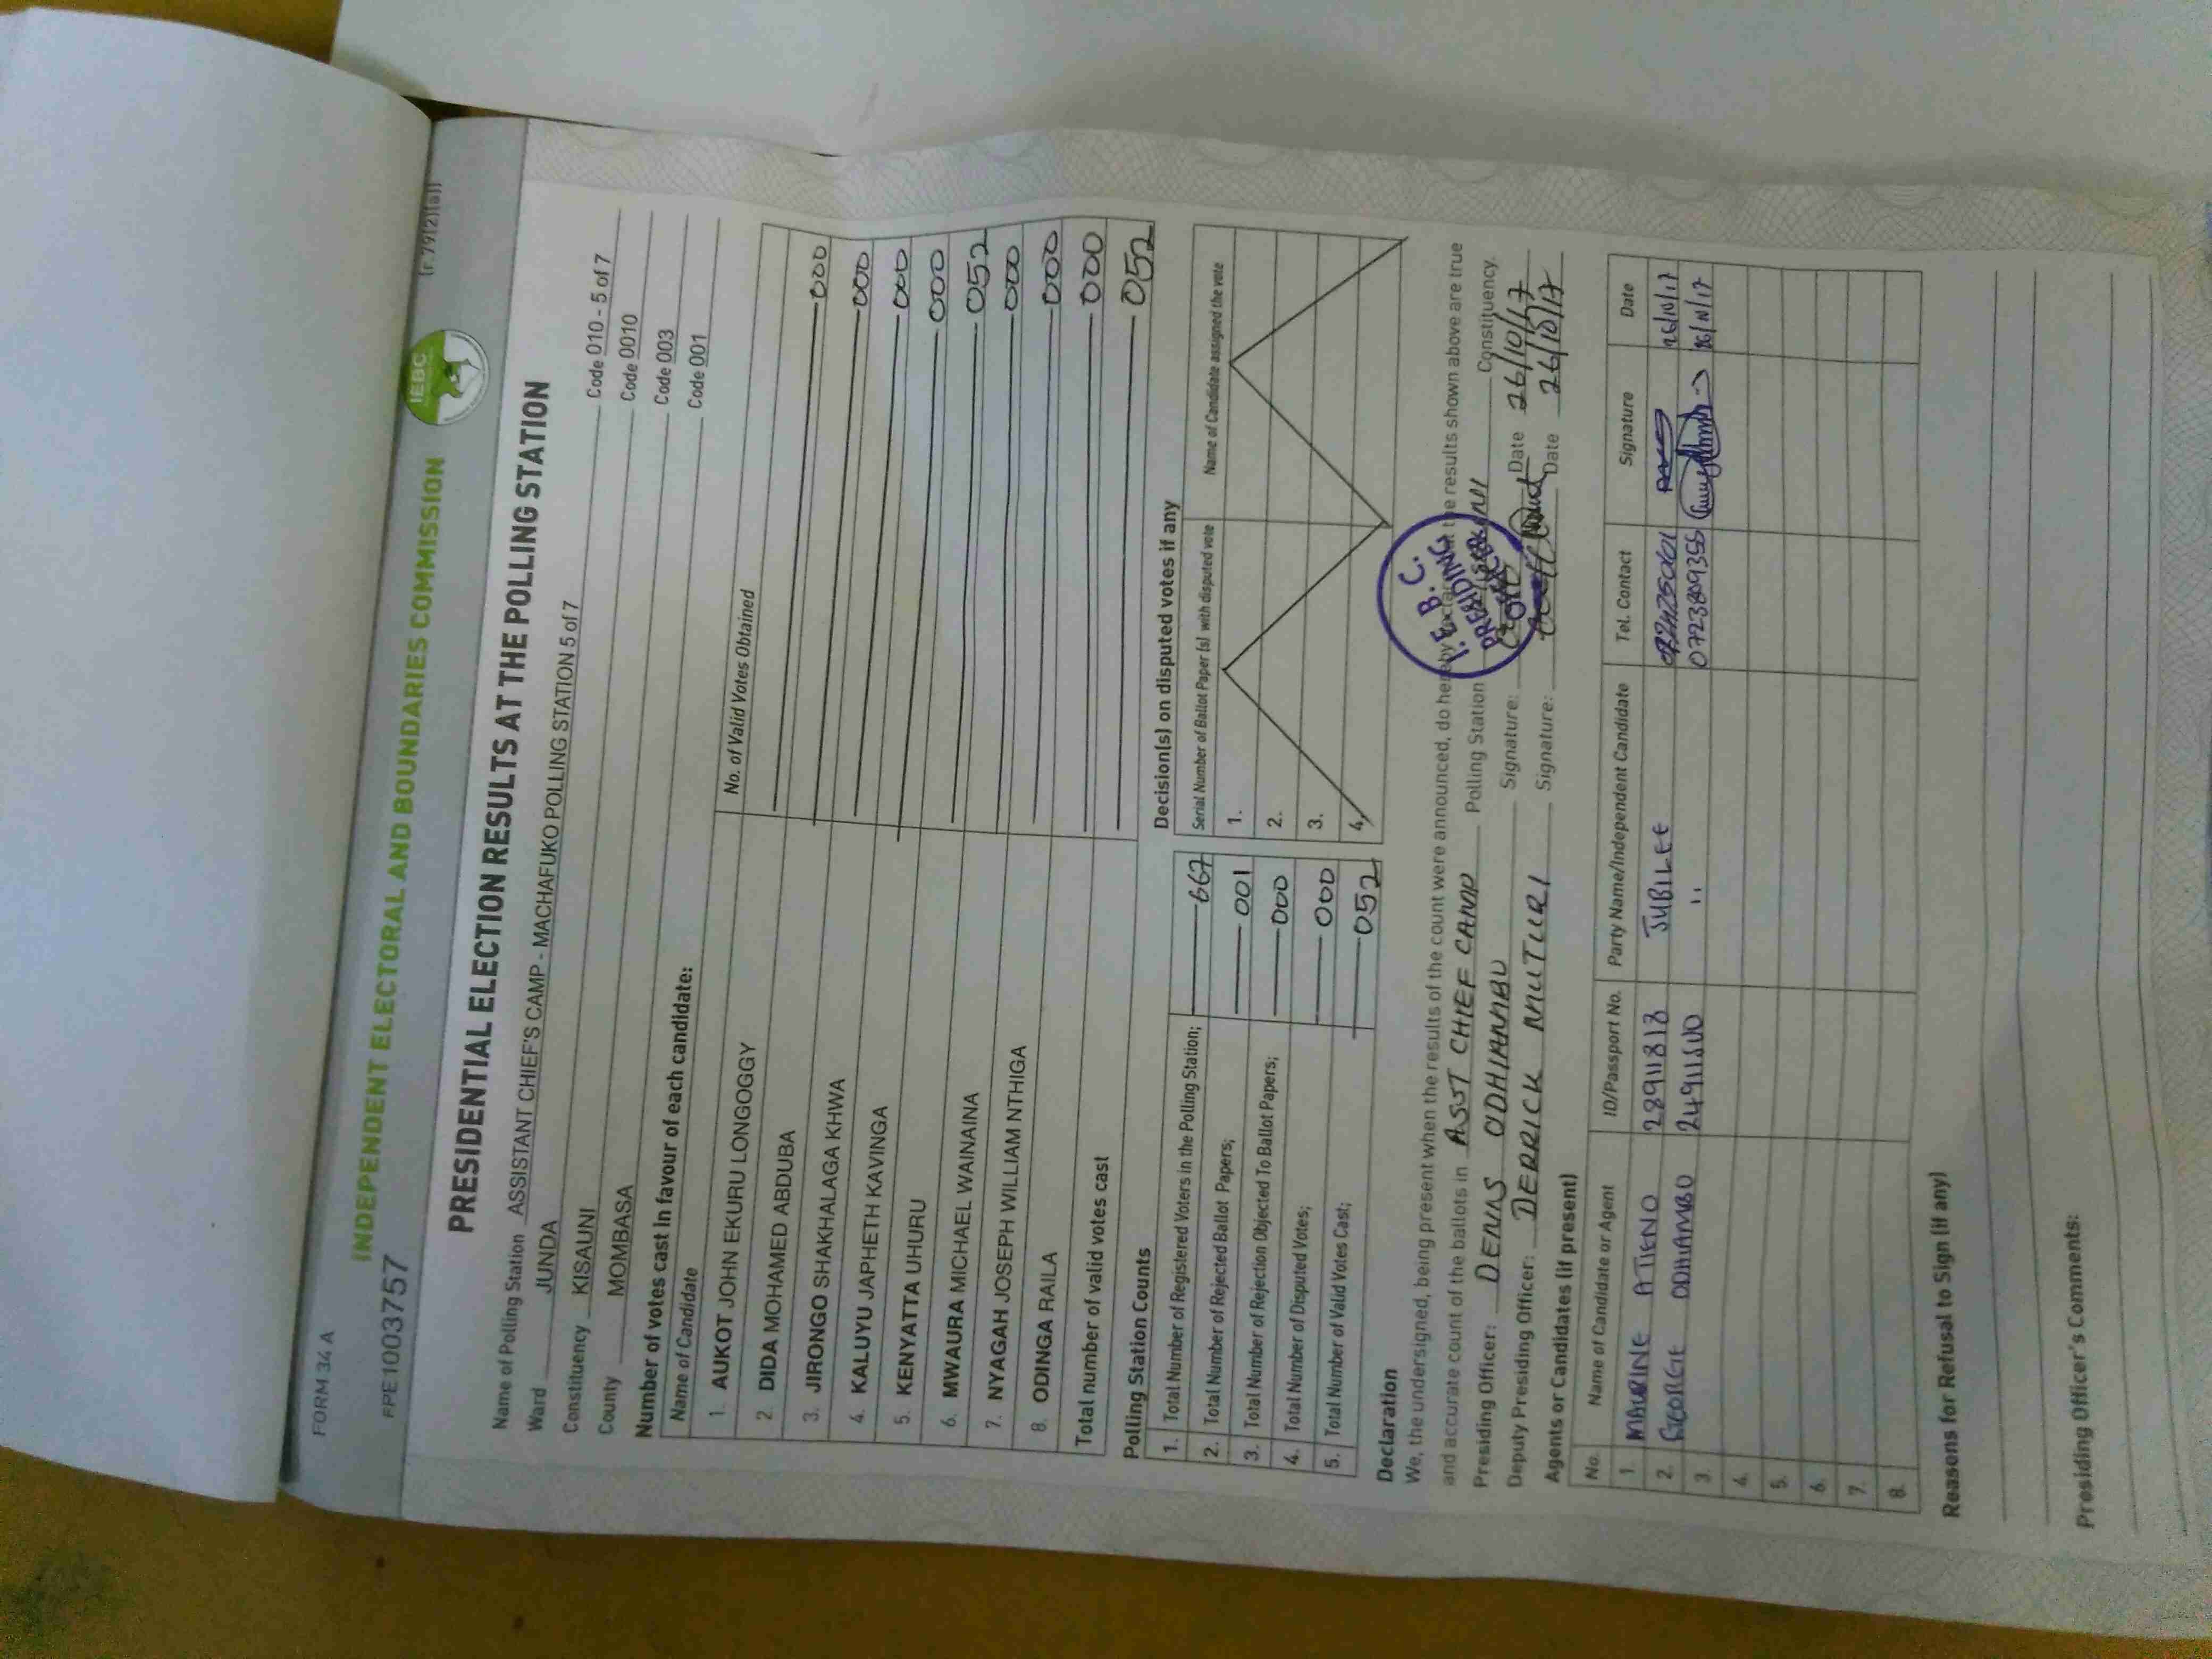 FORM 34 A
(r.79(2)(a))
INDEPENDENT ELECTORAL AND BOUNDARIES COMMISSION
IEBC
FPE1003757
PRESIDENTIAL ELECTION RESULTS AT THE POLLING STATION
Name of Polling Station ASSISTANT CHIEF'S CAMP - MACHAFUKO POLLING STATION 5 of 7 Code 010 - 5 of 7
Ward JUNDA Code 0010
Constituency KISAUNI Code 003
County MOMBASA Code 001
Number of votes cast In favour of each candidate:
Name of Candidate No. of Valid Votes Obtained
1. AUKOT JOHN EKURU LONGOGGY 000
2. DIDA MOHAMED ABDUBA 000
3. JIRONGO SHAKHALAGA KHWA 000
4. KALUYU JAPHETH KAVINGA 000
5. KENYATTA UHURU 052
6. MWAURA MICHAEL WAINAINA 000
7. NYAGAH JOSEPH WILLIAM NTHIGA 000
8. ODINGA RAILA 000
Total number of valid votes cast 052
Polling Station Counts
1. Total Number of Registered Voters in the Polling Station; 667
2. Total Number of Rejected Ballot Papers; 001
3. Total Number of Rejection Objected To Ballot Papers; 000
4. Total Number of Disputed Votes; 000
5. Total Number of Valid Votes Cast; 052
Decision(s) on disputed votes if any
Serial Number of Ballot Paper (s) with disputed vote Name of Candidate assigned the vote
1.
2.
3.
4.
Declaration
We, the undersigned, being present when the results of the count were announced, do hereby declare that the results shown above are true
and accurate count of the ballots in ASST CHIEF CAMP Polling Station KISAUNI Constituency.
Presiding Officer: DENNIS ODHIAMBO Signature: Date 26/10/17
Deputy Presiding Officer: DERRICK MUTURI Signature: Date 26/10/17
I.E.B.C.
PRESIDING
OFFICER
Agents or Candidates (if present)
No. Name of Candidate or Agent ID/Passport No. Party Name/Independent Candidate Tel. Contact Signature Date
1. MAURINE ATIENO 28911813 JUBILEE 26/10/17
2. GEORGE ODHIAMBO 24911510 '' 0723889355 26/10/17
3.
4.
5.
6.
7.
8.
Reasons for Refusal to Sign (if any)
Presiding Officer's Comments: